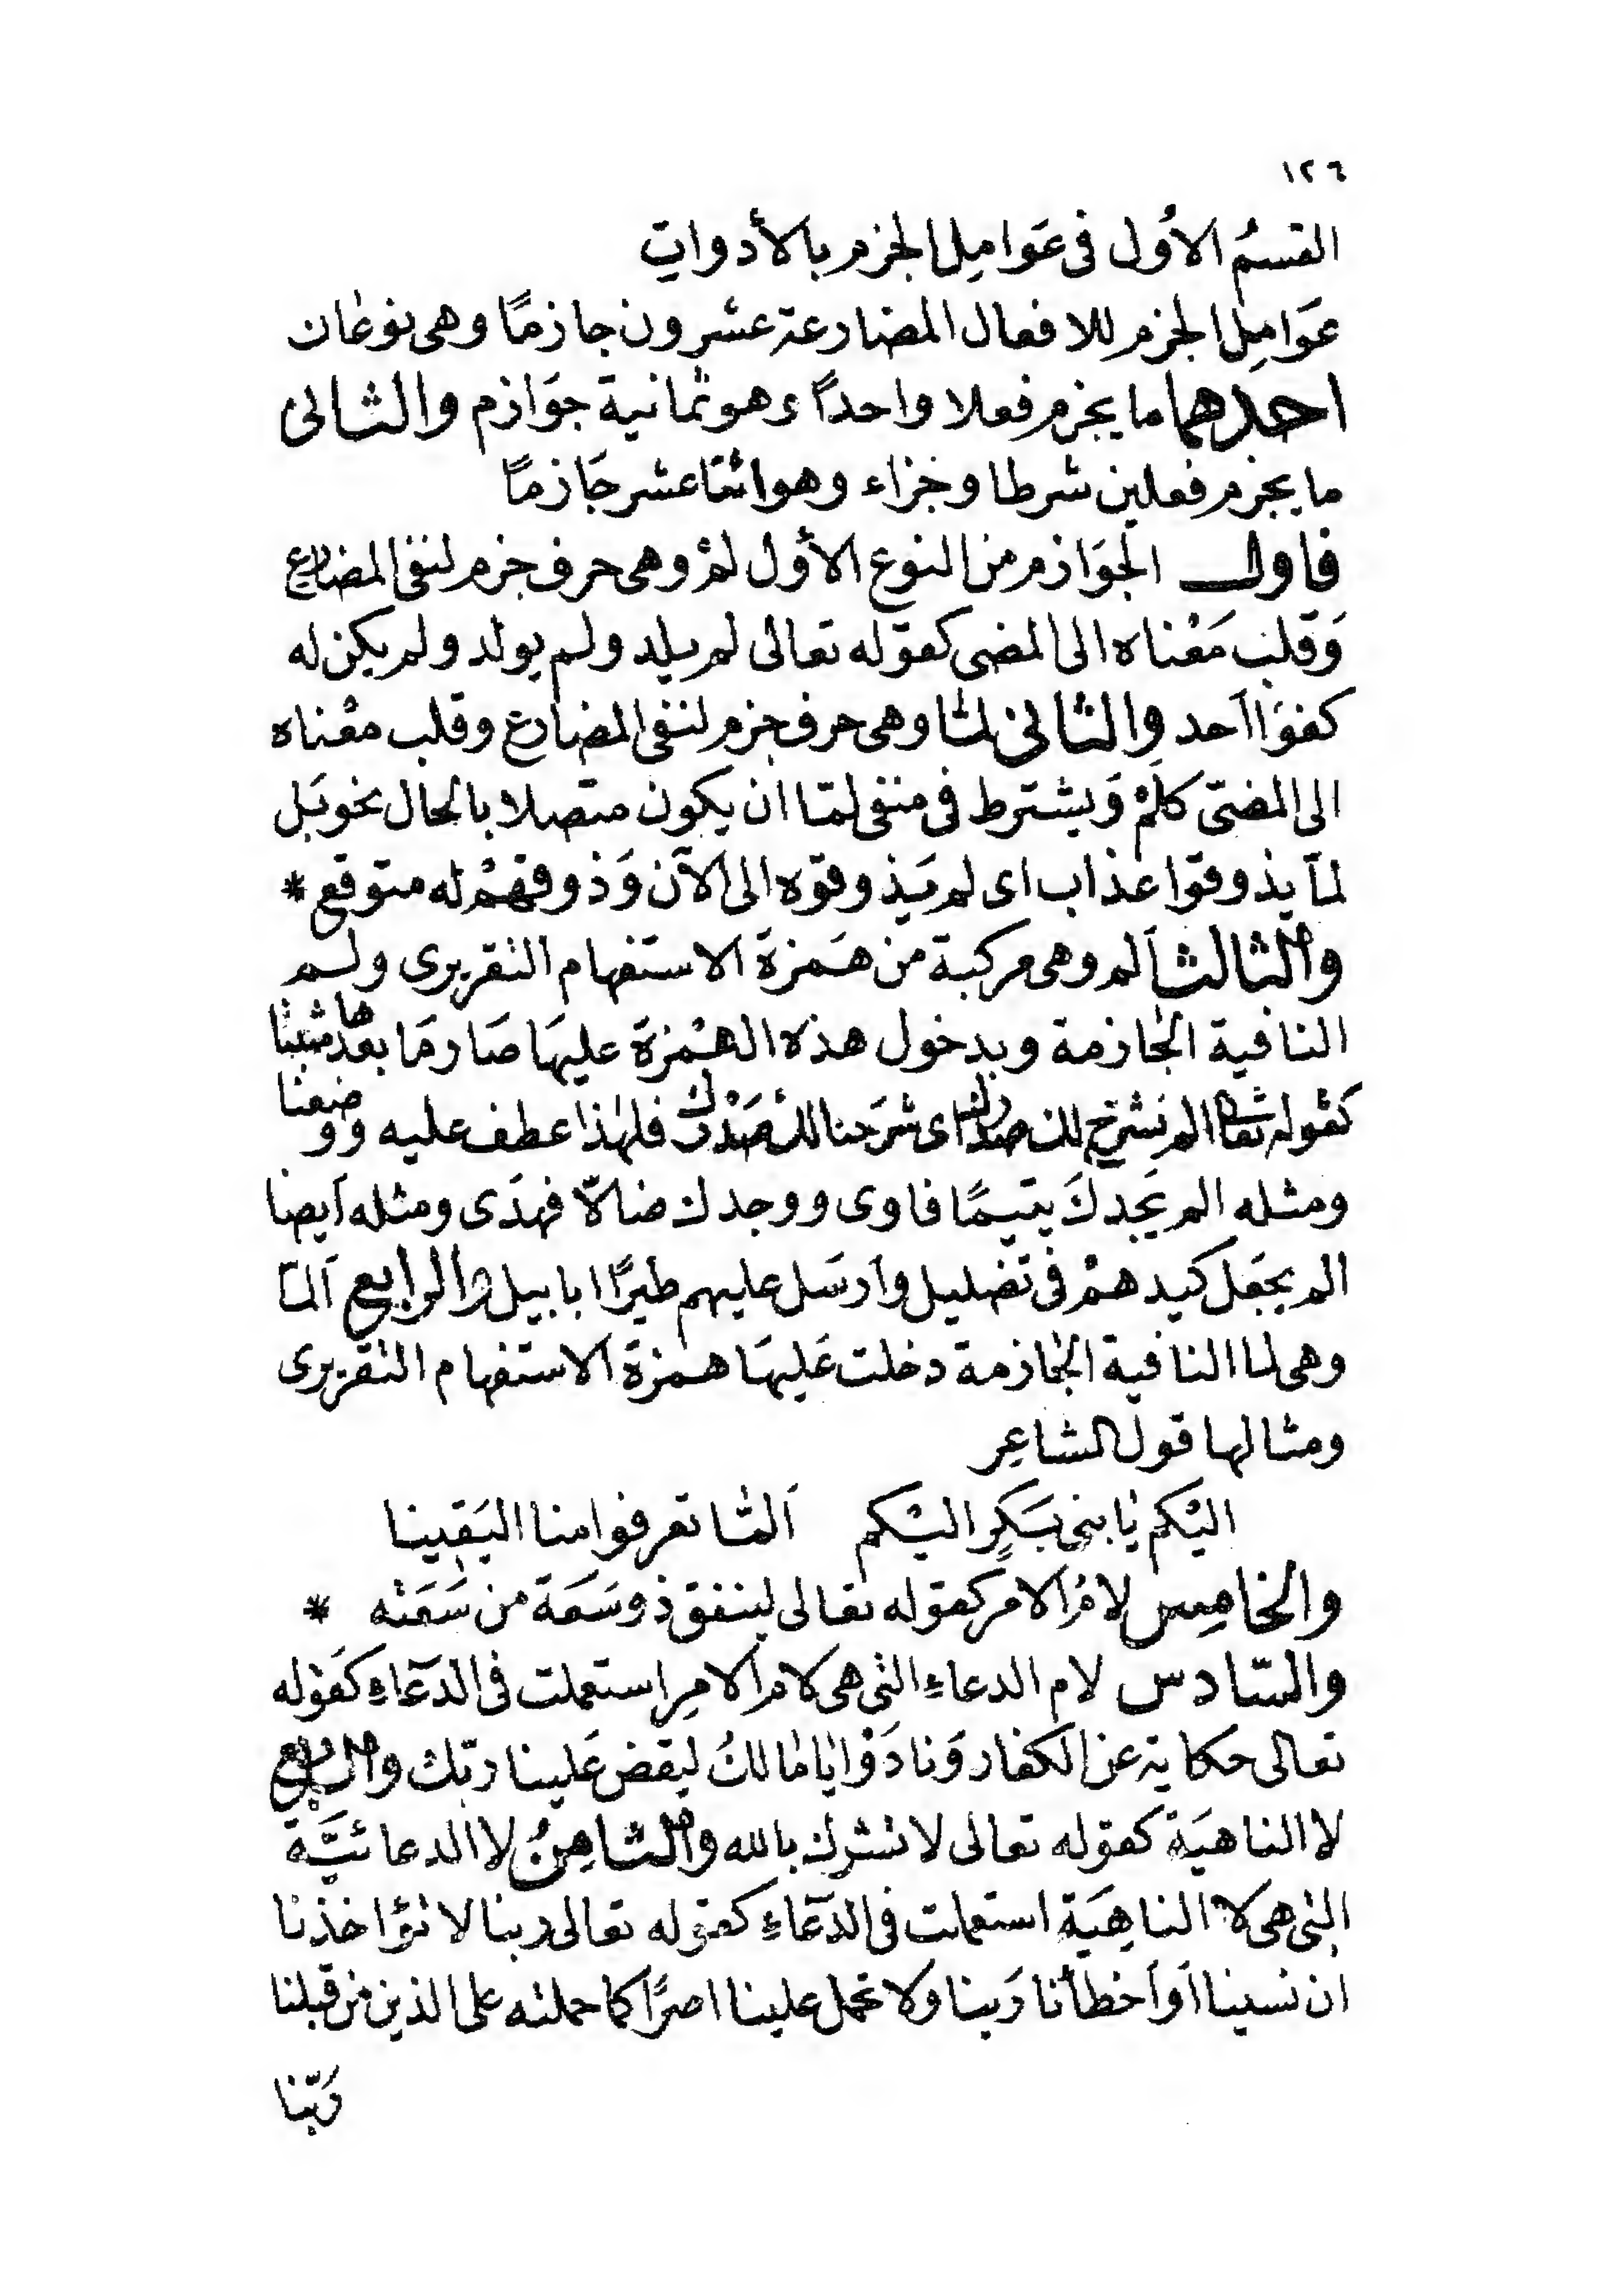 ١٢٦
القسمُ الأول فى عَوامِل الجزم بالأدواتِ
عوَامِل الجزم للافعال المضارعة عشرون جازمًا وهى نوعان
احدهما ما يجزم فعلا واحدًا وهو ثمانية جوَازم والثانى
ما يجزم فعلين شرطا وجزاء وهو اثنتا عشر جَازمًا
فاول الجوَازم من النوع الأول لمْ وهى حرف جزم لنفى المضارع
وَقلب مَعْناه الى المضى كقوله تعالى لم يلد ولم يولد ولم يكن له
كفوَا احد والثانى لما وهى حرف جزم لنفى المضارع وقلب معْناه
الى المضىّ كلَمْ وَيشترط فى منفى لمّا ان يكون متصلا بالحال نحو بَل
لمّا يذوقوا عذاب اى لم يَذوقوه الى الآن وَذوقهمْ له متوقع *
والثالث اَلم وهى مركبة من هَمزة الاستفهام التقريرى ولم
النافية الجازمة وبدخول هذه الهمْزة عليهَا صَار مَا بعدها مثبتا
كقوله تعالى الم نَشرح لك صدرك اى شرَحنا لك صَدْرك فلهٰذا عطف عليه ووضعنا
ومثله الم يَجدكَ يتيمًا فاوى ووجدك ضالّا فهدَى ومثله اَيضا
الم يجعَل كيدهمْ فى تضليل واَرسَل عليهم طيرًا ابابيل والرابع اَلمّا
وهى لما النافية الجازمة دخلت عَليهَا همزة الاستفهام التقريرى
ومثالها قول الشاعِر
اليْكم يٰا بنى بَكرٍ اليْكم اَلمّا تعرفوا منا اليَقِينا
والخامِس لامُ الامر كقوله تعالى لينفق ذو سَعَة من سَعَته *
والسّادس لام الدعاءِ التى هى لام الامِر استعملت فى الدّعاءِ كقوْله
تعالى حكاية عن الكفار وَنادَوْا يٰا مٰالكُ ليقض عَلينا ربّك والسابع
لا الناهيَة كقوله تعالى لا تشرك بالله والثامِنُ لا الدعائيَّة
التى هى لا الناهِيَة استعملت فى الدّعاءِ كقوله تعالى ربنا لا تؤاخذنا
ان نسينا اَو اَخطأنا رَبنا ولا تحمل علينا اصرًا كما حملته على الذين من قبلنا
رَبّنا